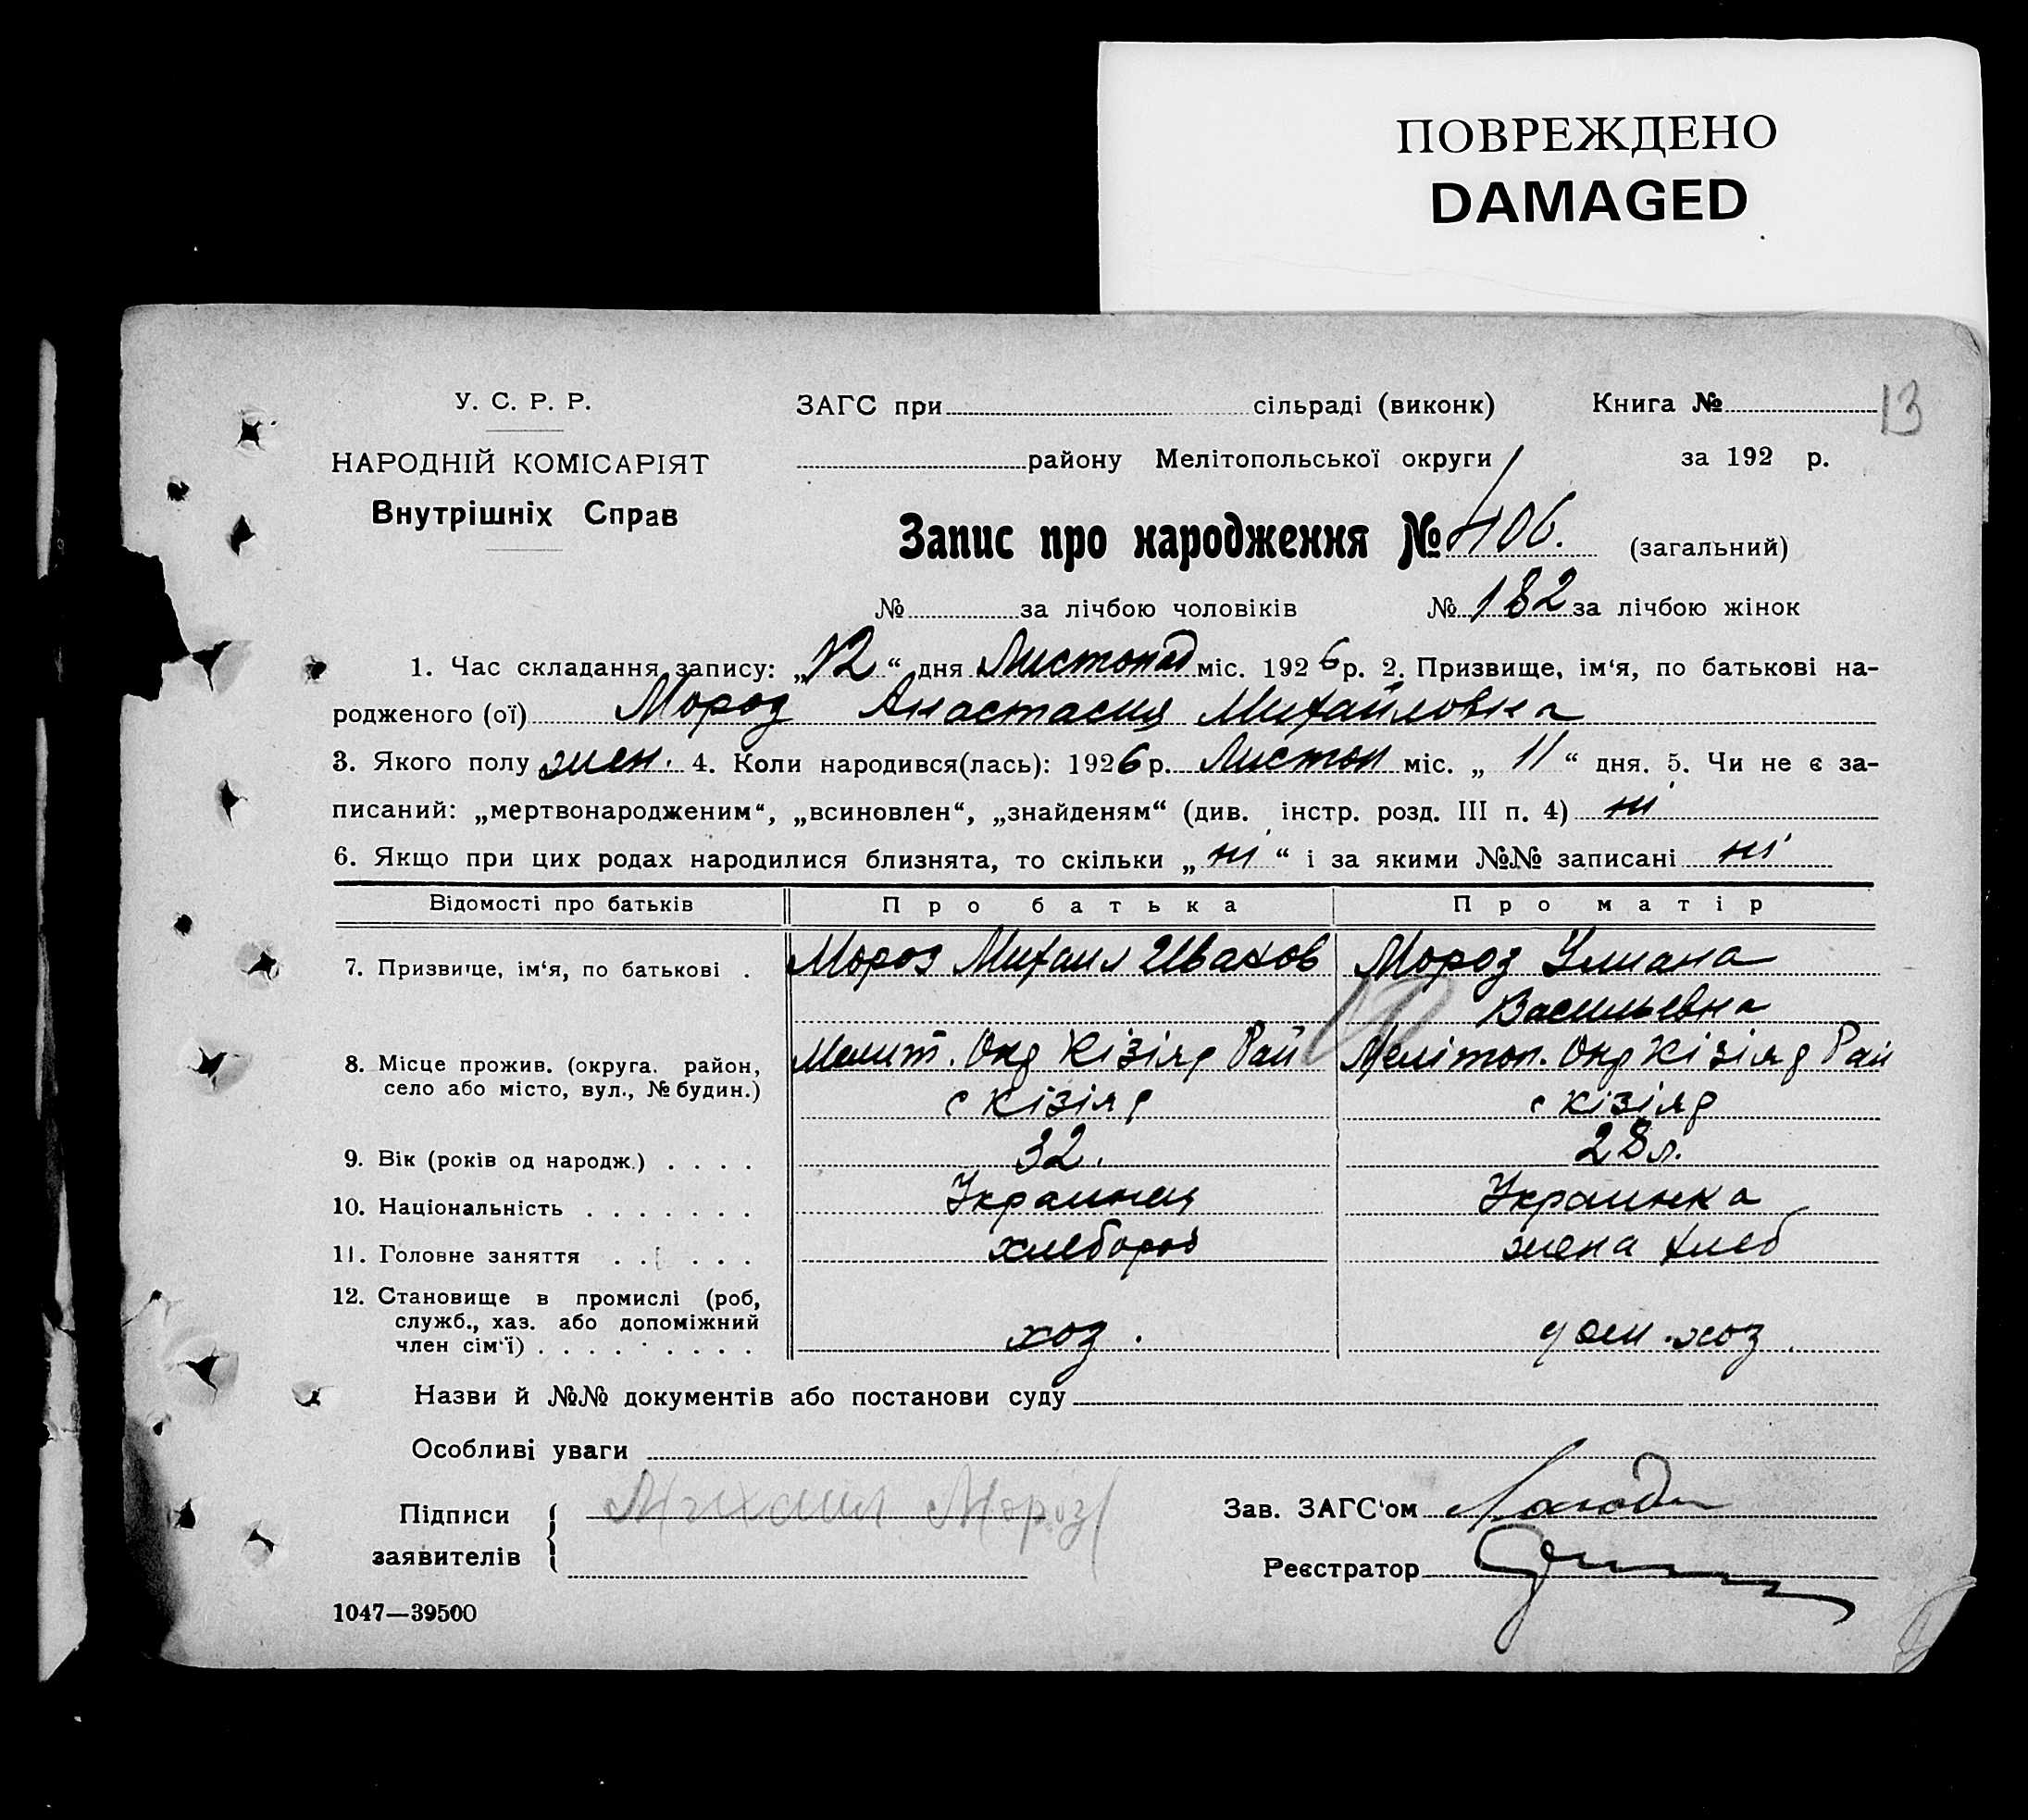 ПОВРЕЖДЕНО
DAMAGED
У. С. Р. Р.
НАРОДНІЙ КОМІСАРІЯТ
Внутрішніх Справ
ЗАГС при сільраді (виконк) Книга № 13
району Мелітопольської округи за 192 р.
Запис про народження № 406. (загальний)
№ за лічбою чоловіків № 182 за лічбою жінок
1. Час складання запису: „12“ дня Листопад міс. 1926 р. 2. Призвище, ім‘я, по батькові на-
родженого (ої) Мороз Анастасия Михайловна
3. Якого полу жен. 4. Коли народився(лась): 1926 р. Листоп міс. „11“ дня. 5. Чи не є за-
писаний: „мертвонародженим“, „всиновлен“, „знайденям“ (див. інстр. розд. III п. 4) ні
6. Якщо при цих родах народилися близнята, то скільки „ні“ і за якими №№ записані ні
Відомості про батьків Про батька Про матір
7. Призвище, ім‘я, по батькові . Мороз Михаил Иванов Мороз Улиана
Васильевна
8. Місце прожив. (округа, район, Мелит. Окр Кізіяр Рай Мелітоп. Окр Кізіяр Рай
село або місто, вул., № будин.) с Кізіяр с Кізіяр
9. Вік (років од народж.) . . . . 32. 28 л.
10. Національність . . . . . . . Украинец Украинка
11. Головне заняття . . . . . хлебороб жена хлеб
12. Становище в промислі (роб,
служб., хаз. або допоміжний
член сім‘ї) . . . . . . . . . хоз. дом. хоз
Назви й №№ документів або постанови суду
Особливі уваги
Підписи
заявителів
Михаил Мороз
Зав. ЗАГС‘ом
Реєстратор
1047—39500